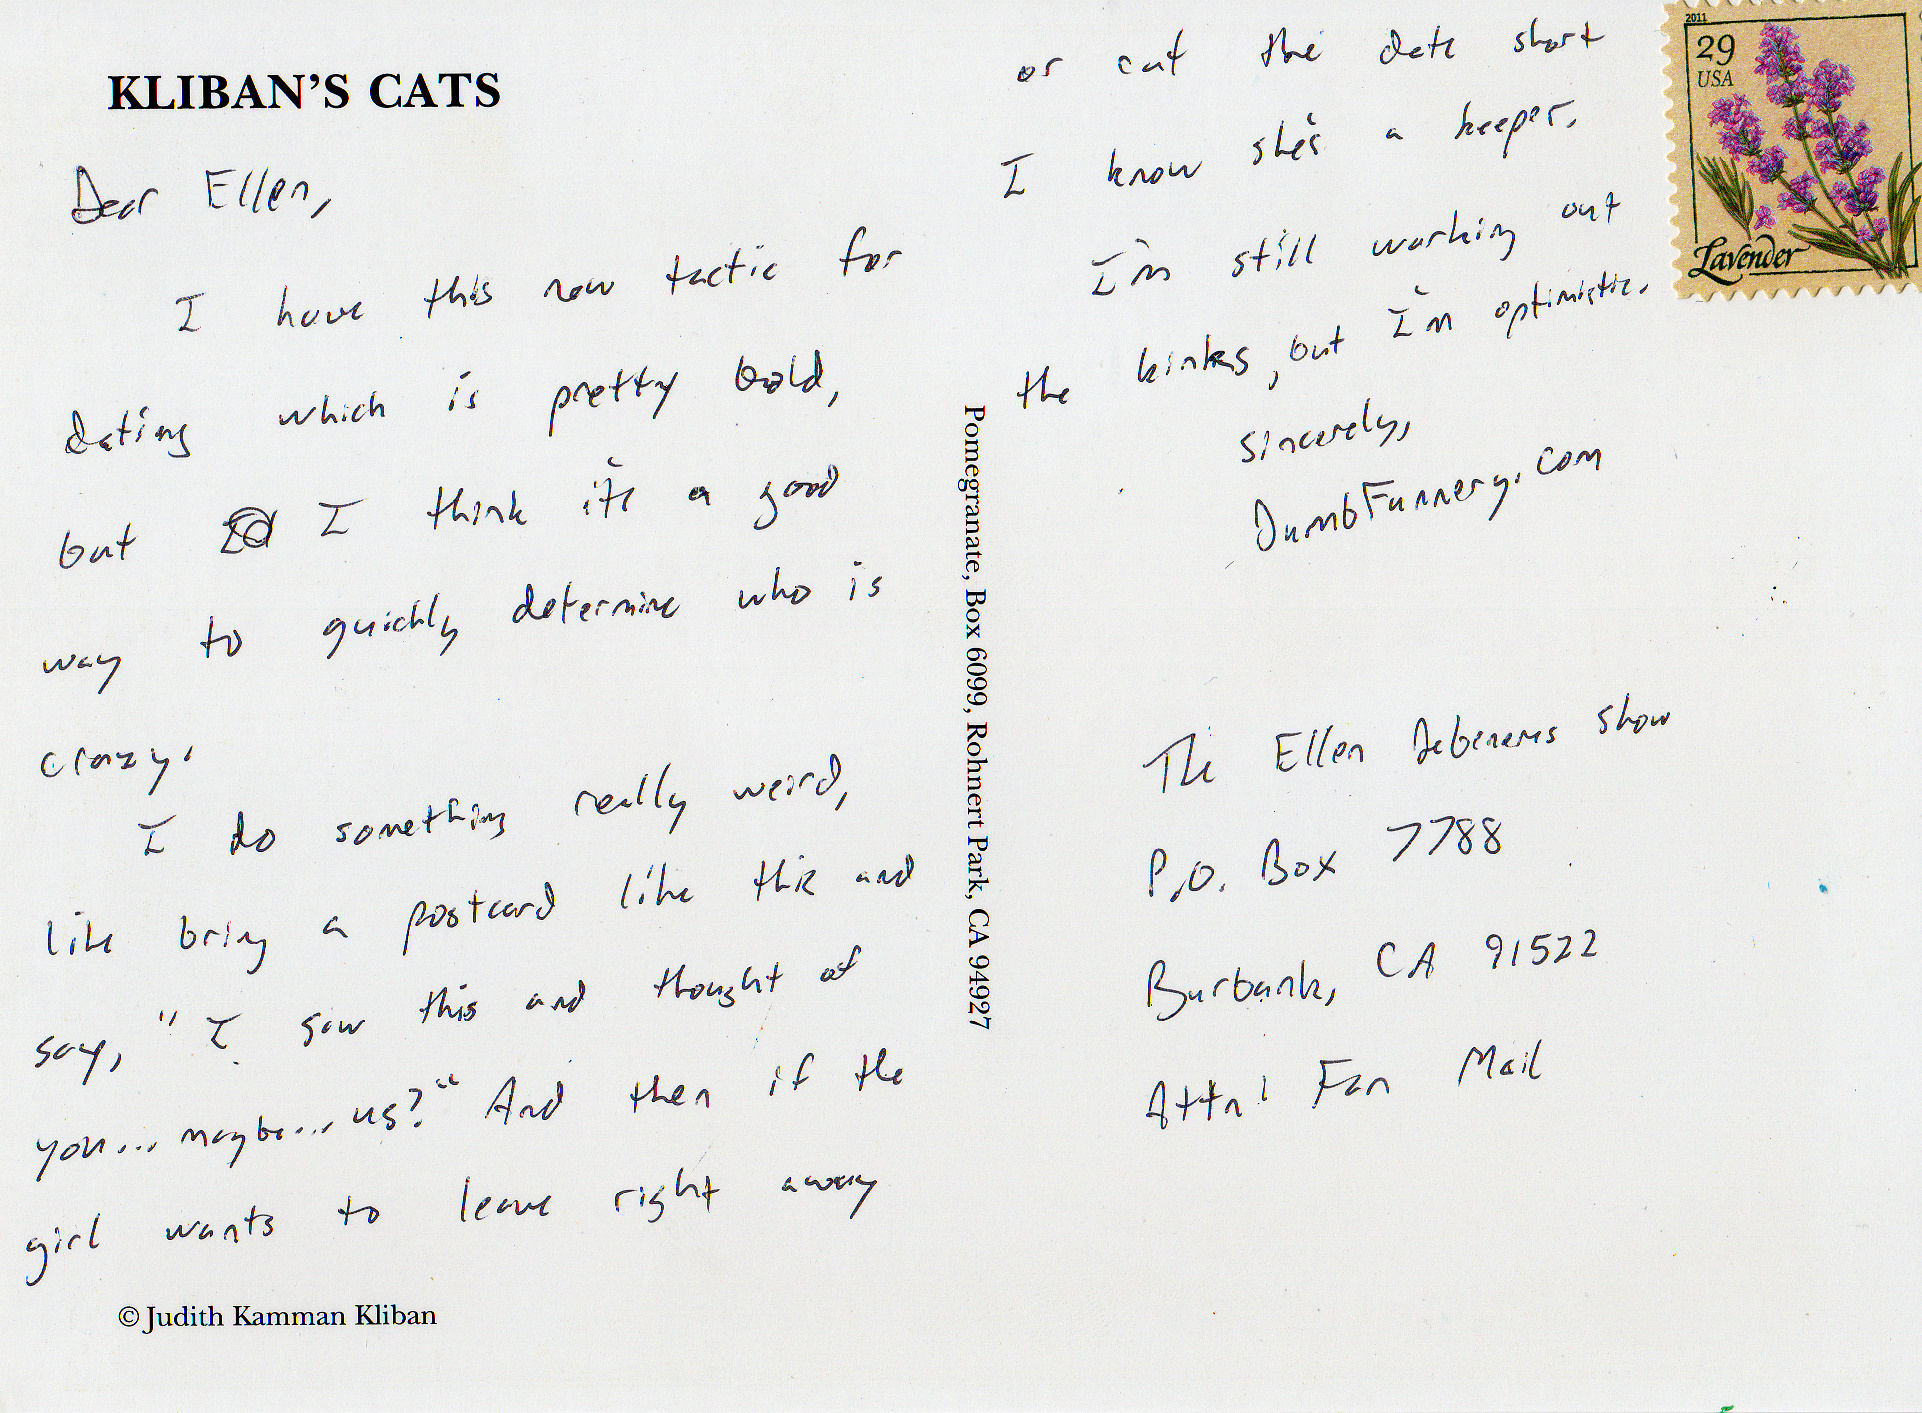 KLIBAN'S CATS
Dear Ellen,
I have this new tactic for
dating which is pretty bold,
but I think it's a good
way to quickly determine who is
crazy.
I do something really weird,
like bring a postcard like this and
say, "I saw this and thought of
you... maybe... us?" And then if the
girl wants to leave right away
© Judith Kamman Kliban
Pomegranate, Box 6099, Rohnert Park, CA 94927
or cut the date short
I know she's a keeper.
I'm still working out
the kinks, but I'm optimistic.
sincerely,
DumbFunnery.com
2011
29
USA
Lavender
The Ellen Degeneres Show
P.O. Box 7788
Burbank, CA 91522
Attn: Fan Mail